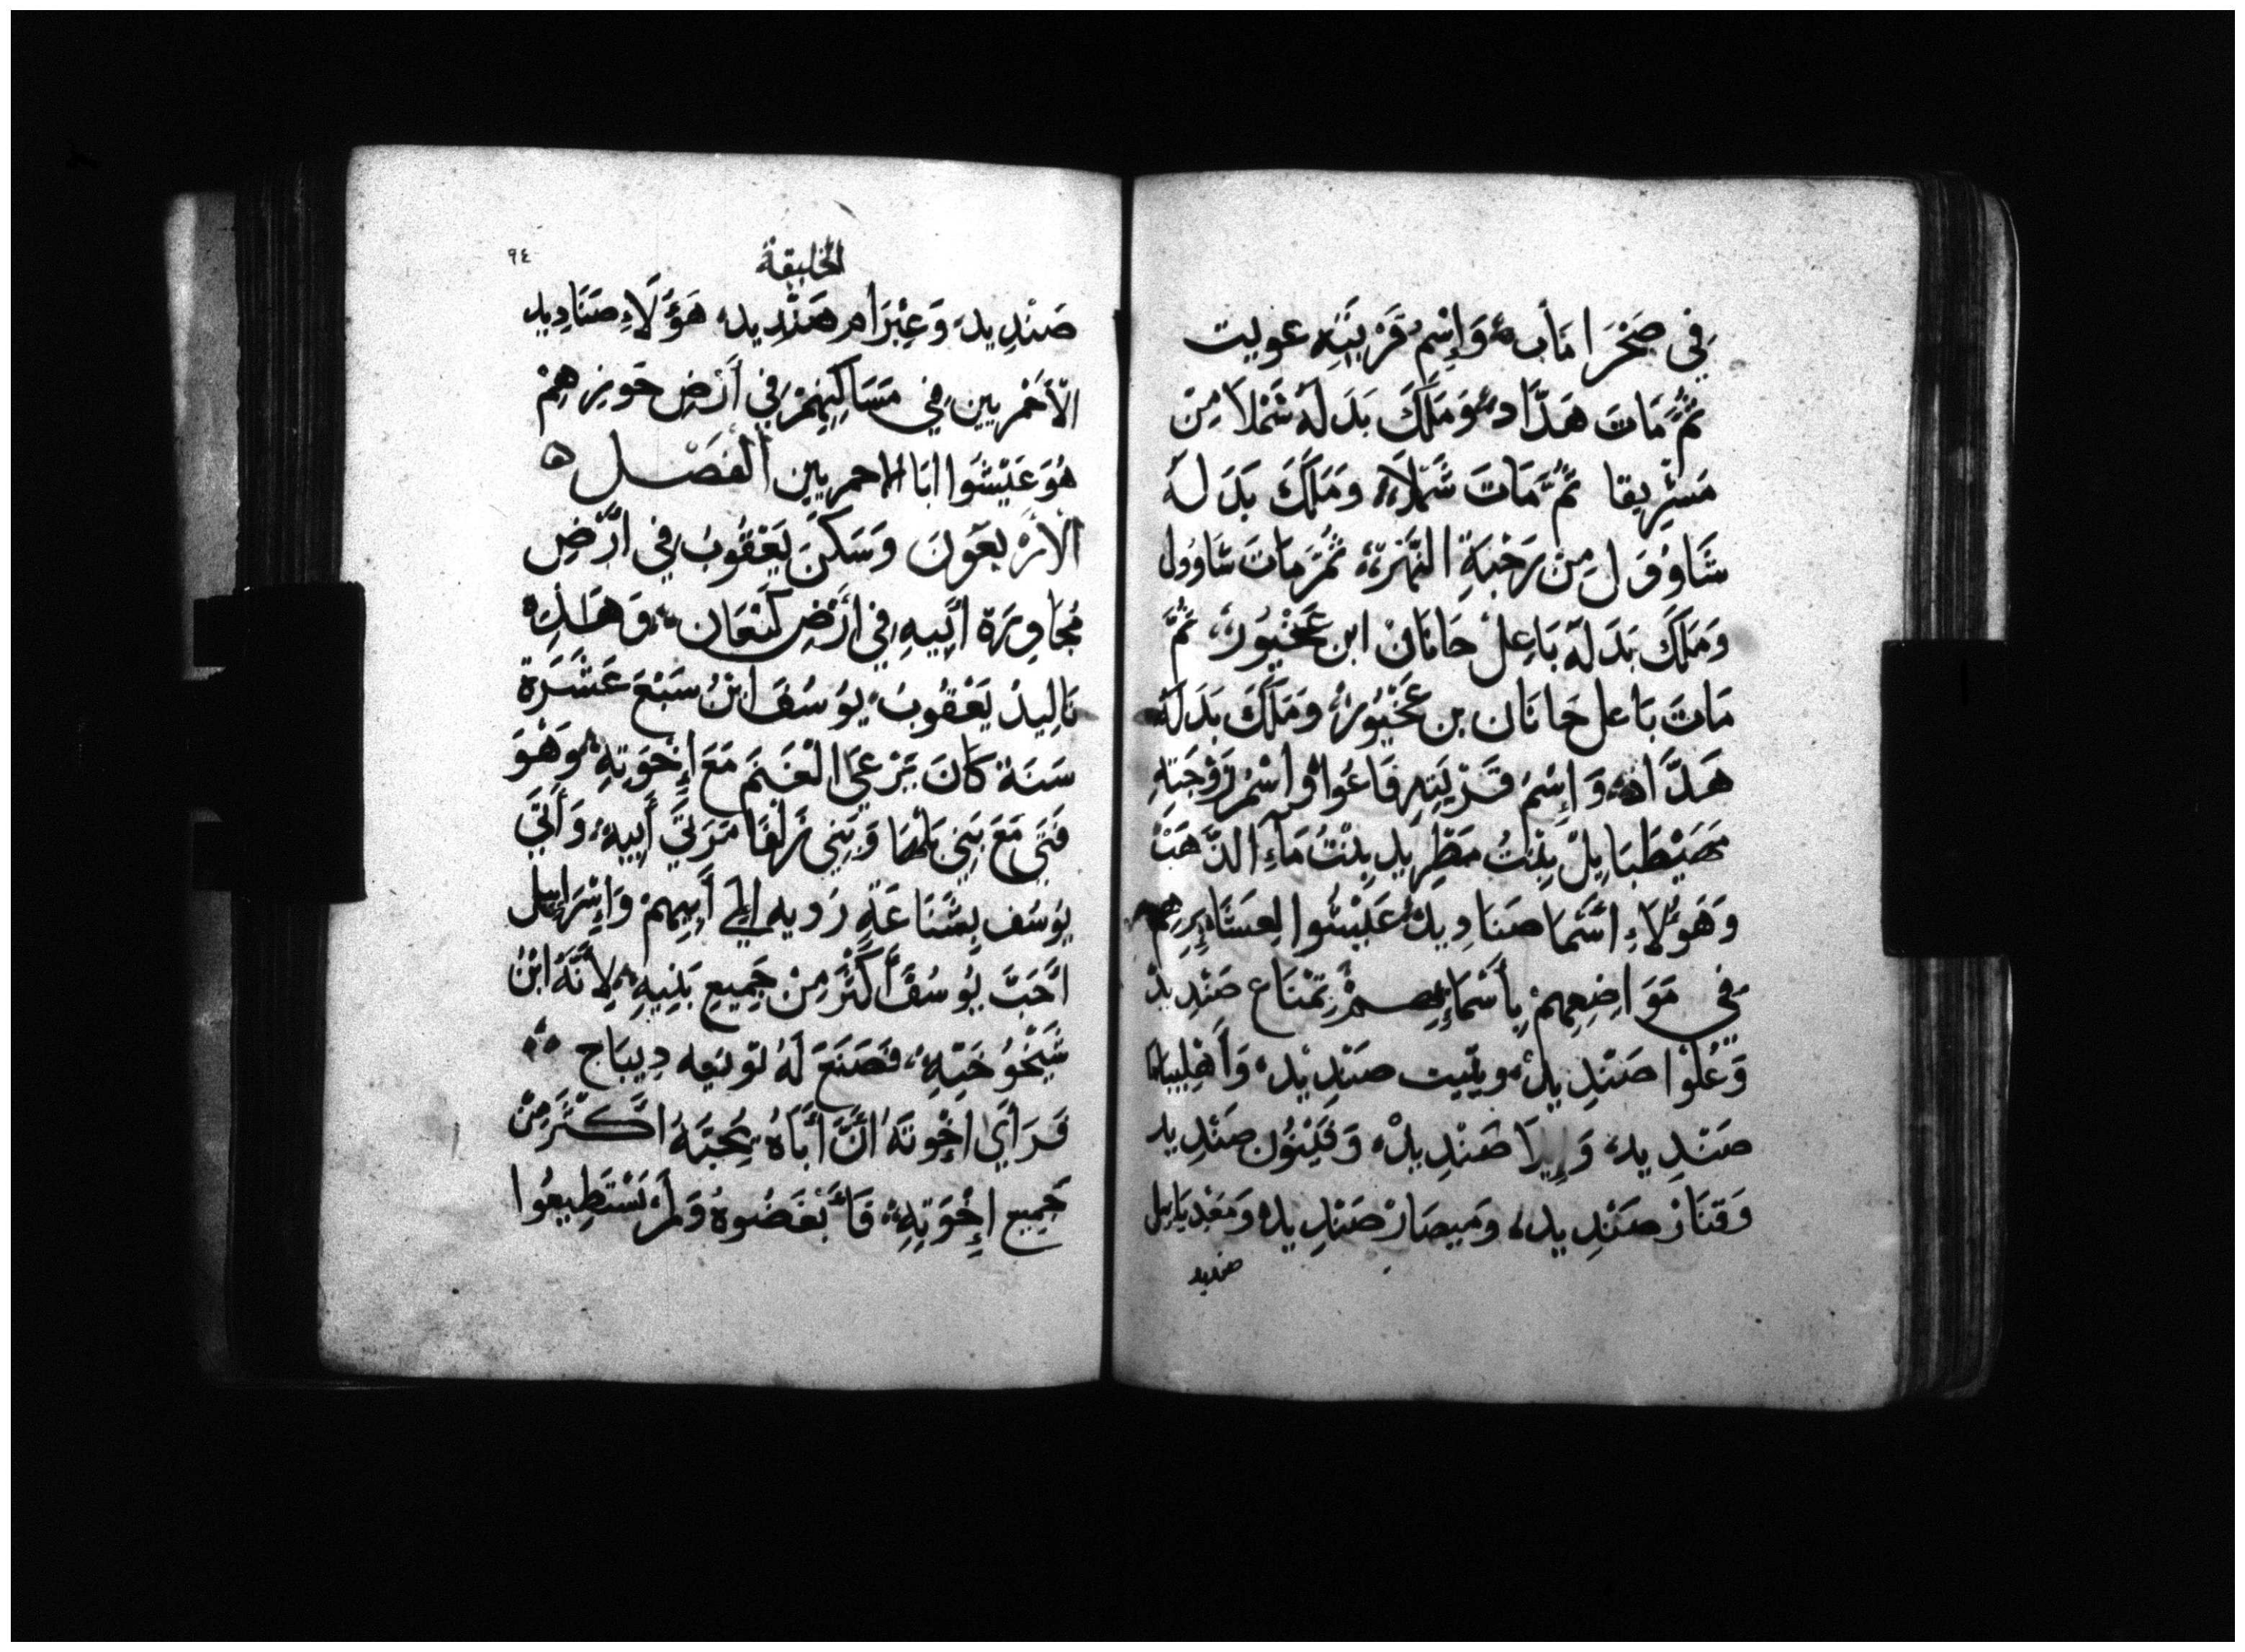 في صَحْرَا مَأب وَإِسْمُ قَرْيَتِهِ عويت
ثُمَّ مَاتَ هَدَّاد وَمَلَكَ بَدَلهُ شَمْلَا مِنْ
مَسْرِيقا ثُمَّ مَاتَ شَمْلَا وَمَلَكَ بَدَلهُ
شَاوُول مِنْ رَحْبَةِ النَّهَرِ ثُمَّ مَاتَ شَاوُول
وَمَلَكَ بَدَلهُ بَاعِلْ حَانَانْ ابن عَخْبُورْ ثُمَّ
مَاتَ بَاعل حَانَان بن عَخْبُورْ وَمَلَكَ بَدَلَهُ
هَدَّاد وَإِسْمُ قَرْيَتِهِ فَاعُوا وَإِسْمُ زَوْجَتِهِ
مَهيْطَبَايِلْ بِنْتُ مَطْرِيد بِنْتُ مَاءِ الذَّهَبْ
وَهَؤُلَاءِ اسْمَا صَنَادِيدْ عَيْشُوا لِعَشَايِرِهِم
فِي مَوَاضِعِهِمْ بِأَسْمَائِهِمْ تِمْنَاع صَنْدِيدْ
وَعُلْوَا صَنْدِيدْ ويتيت صَنْدِيدْ وَأَهْلِيبَامَا
صَنْدِيد وَإِيلَا صَنْدِيدْ وَفَيْنُون صَنْدِيد
وَقنَازْ صَنْدِيد وَمَيصَارْ صَنْدِيد وَمَغْدِيَايل
صنديد
الخليقة
٩٤
صَنْدِيد وَعِيْرَام صَنْدِيد هَؤُلَاءِ صَنَادِيد
الأَحْمَرِيين فِي مَسَاكِنِهِمْ فِي أَرْضِ حَوْزِهِمْ
هُوَ عَيْشُوا ابَا الاحمريين الْفَصْـل ه
الأرْبَعَونَ وَسَكَنَ يَعْقُوبُ فِي ارْضِ
مُجَاوِرَة ابِيهِ فِي ارْضِ كَنْعَان وَهَذِه
تَالِيدْ يَعْقُوبُ يوُسُفَ ابْنُ سَبْعَ عَشَرَة
سَنَة كَانَ يَرْعَى الْغَنَمَ مَعَ إِخْوَتِهِ وَهْوَ
فَتَى مَعَ بَنِي بَلْهَا وَبَنِي زَلْفَا مَرَتَيْ أَبِيهِ وَأَتَى
يوُسُف بِشَنَاعَةٍ رَديه إِلَى أَبِيهِمْ وَإِسْرَايِيل
احَبَّ يُوسُفَ أَكْثَرَ مِنْ جَمِيعِ بَنِيهِ لِأَنَّهُ ابْنُ
شَيْخُوخَتِهِ فَصَنَعَ لَهُ تونيه دِيبَاج
فَرَاىَ إِخْوَتَهُ انَّ أَبَاهُ يُحِبَّهُ اكْثَرَ مِنْ
جَمِيع إِخْوَتِهِ فَأَبْغَضُوهُ وَلَمْ يَسْتَطِيعُوا